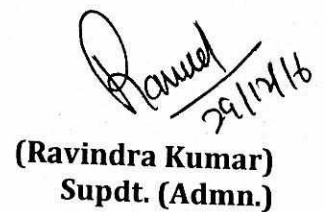 29/12/16
(Ravindra Kumar)
Supdt. (Admn.)